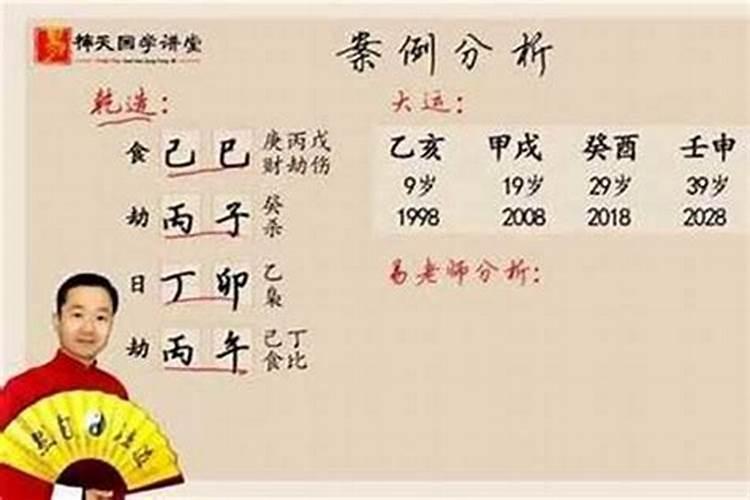 易
神天国学讲堂
案例分析
乾造：
大运：
食 己 巳 庚丙戊
财劫伤
劫 丙 子 癸
杀
日 丁 卯 乙
枭
劫 丙 午 己丁
食比
乙亥 甲戌 癸酉 壬申
9岁 19岁 29岁 39岁
1998 2008 2018 2028
易老师分析：